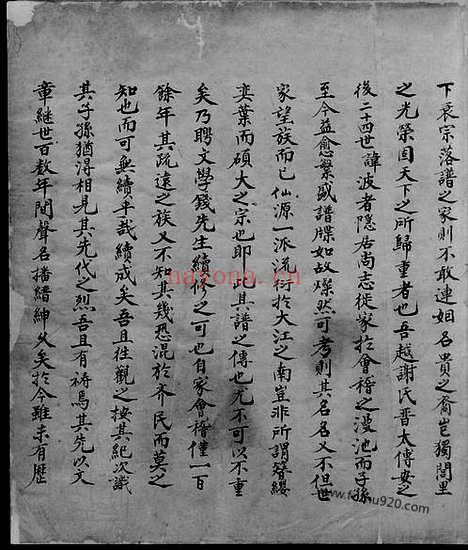 下衰宗落譜之家則不敢連姻名貴之裔豈獨閭里
之光榮固天下之所歸重者也吾越謝氏晉太傅安之
後二十四世諱波者隱居尚志徙家於會稽之漫池而子孫
至今益愈繁盛譜牒如故燦然可考則其名名又不但世
家望族而已仙源一派流衍於大江之南豈非所謂簪纓
奕葉而碩大之宗也耶此其譜之傳也尤不可以不重
矣乃聘文學錢先生續修之可也自家會稽僅一百
餘年其疏遠之族又不知其幾恐混於齊民而莫之
知也而可無續乎哉續成矣吾且往觀之按其紀次識
其子孫猶得相見其先代之烈吾且有禱焉其先以文
章継世百数年聞聲名播縉紳久矣於今雖未有歷
nayona.cn
www.fozhu920.com